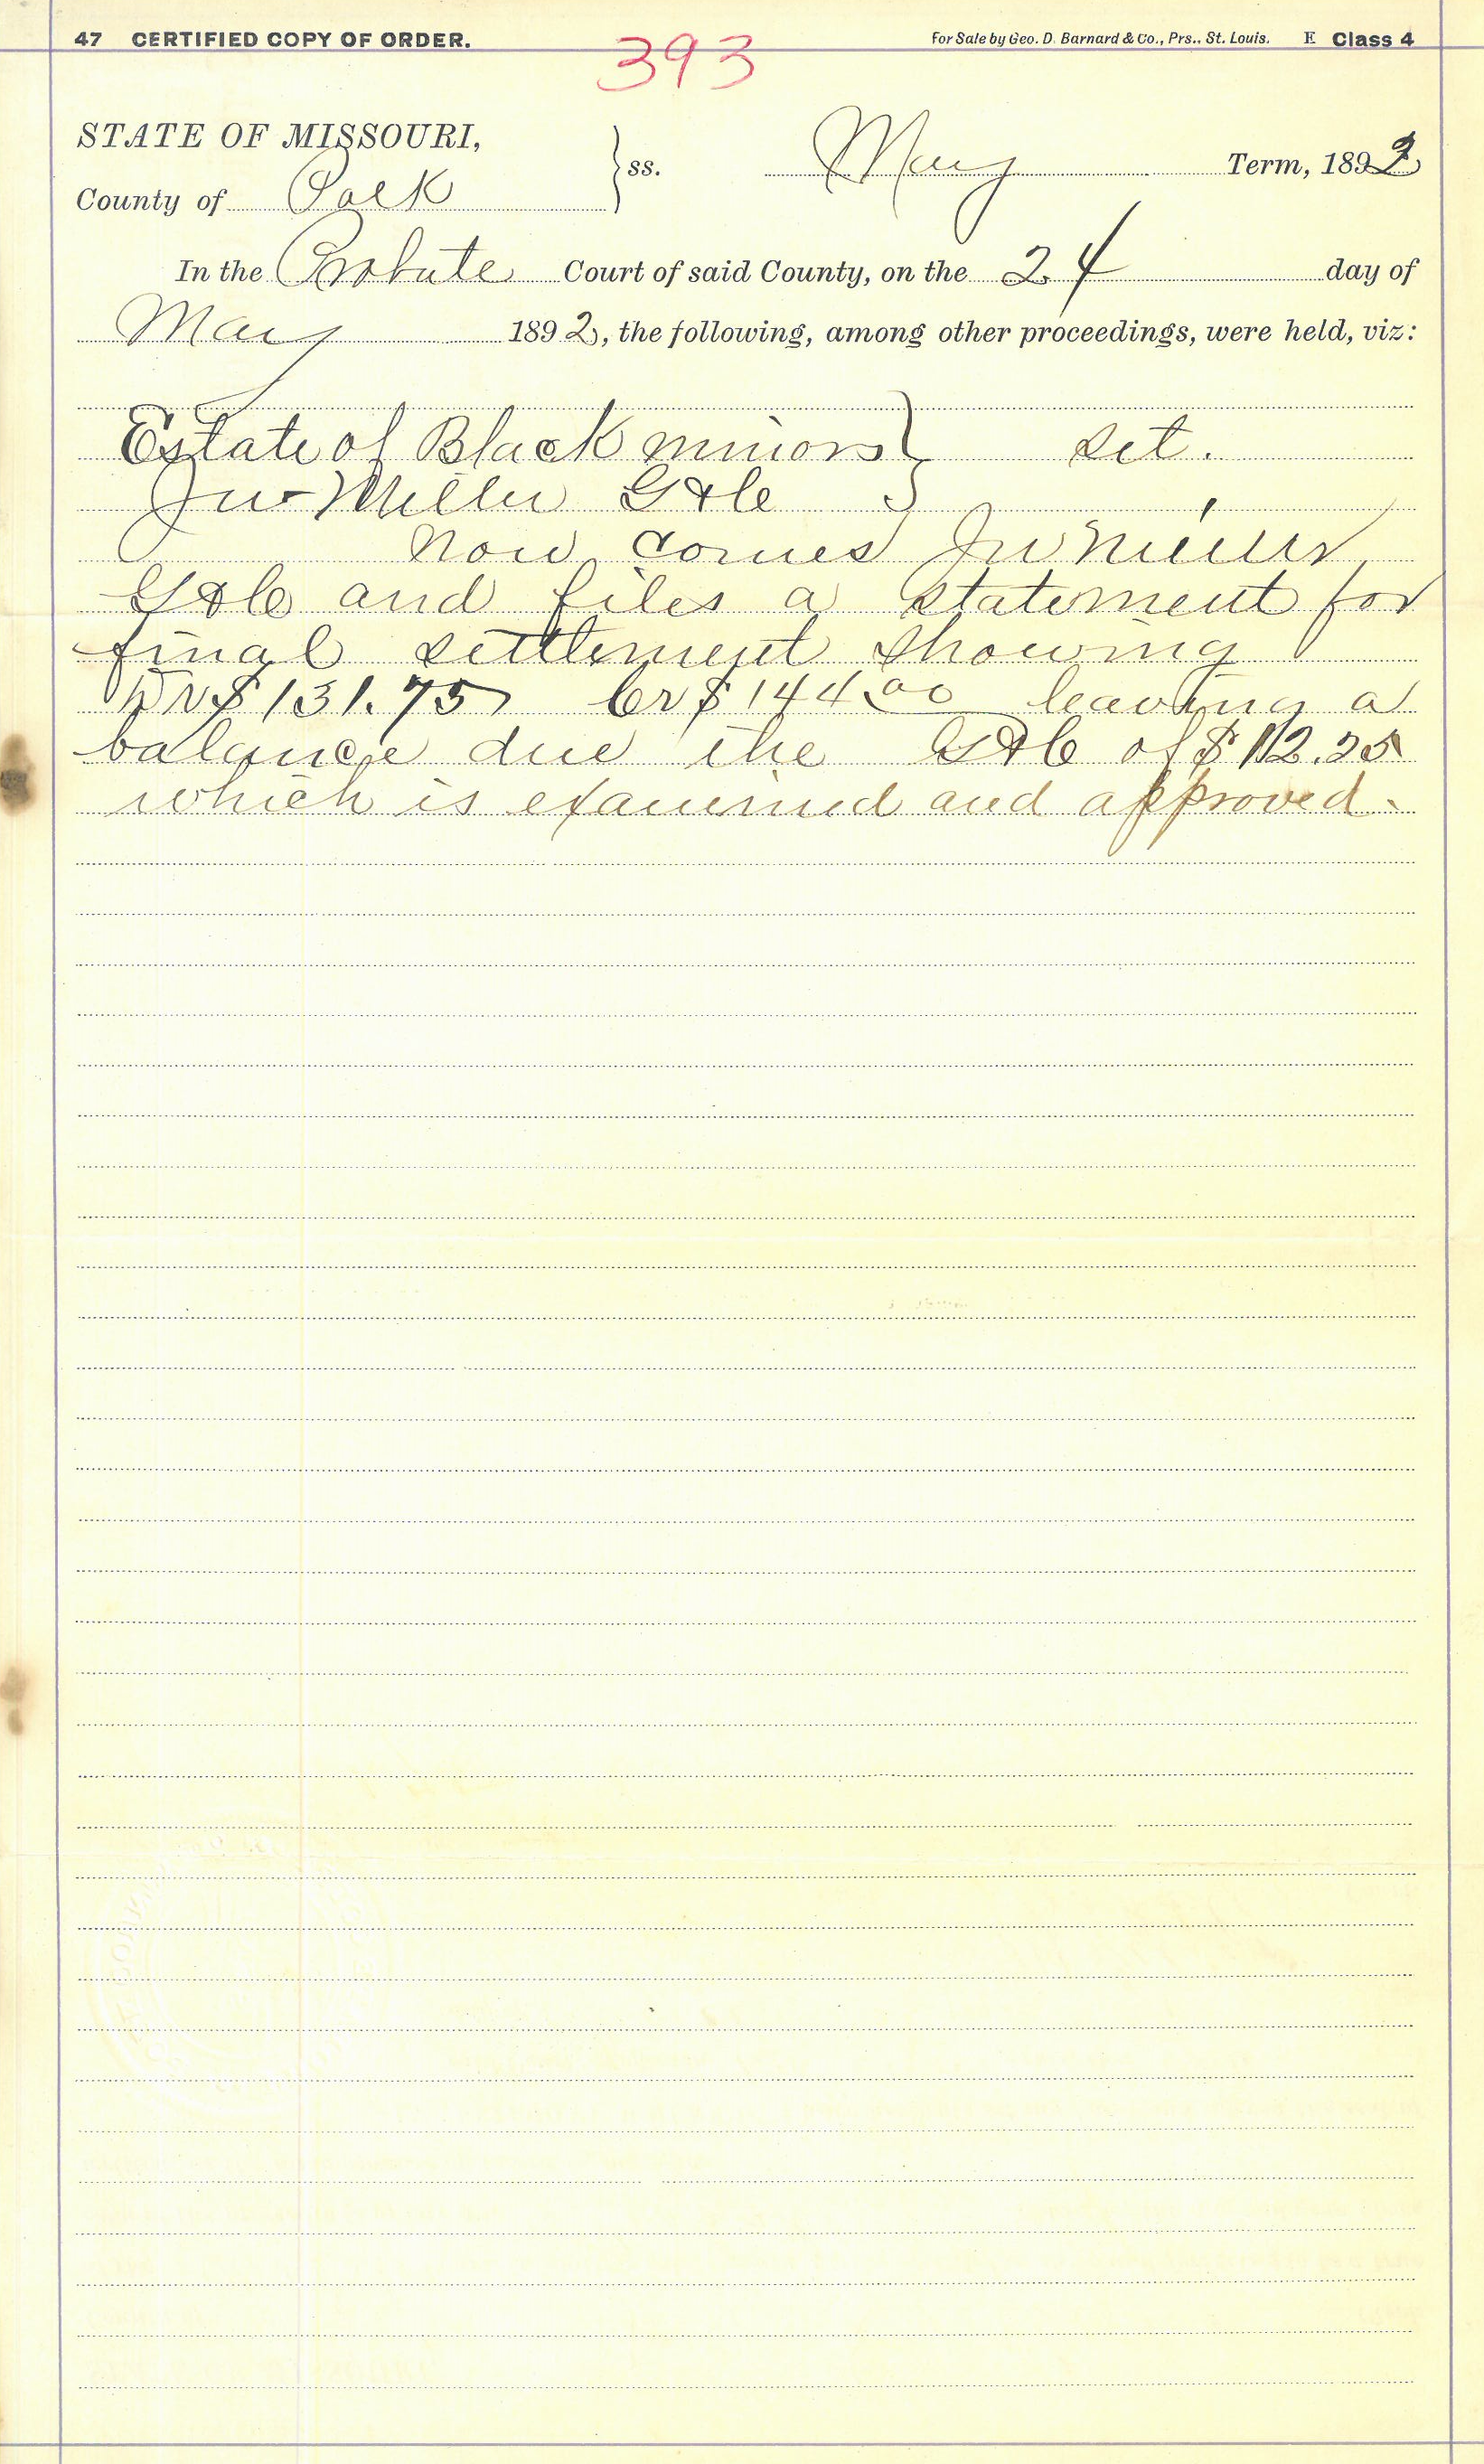 47 CERTIFIED COPY OF ORDER.
393
For Sale by Geo. D. Barnard & Co., Prs., St. Louis. E Class 4
STATE OF MISSOURI,
County of Polk } ss. May Term, 1892
In the Probate Court of said County, on the 24 day of
May 1892, the following, among other proceedings, were held, viz:
Estate of Black minors } set.
Jno Miller G&C }
Now comes Jno Miller
G&C and files a statement for
final settlement showing
Dr $131.75 Cr $144.00 leaving a
balance due the G&C of $12.25
which is examined and approved.